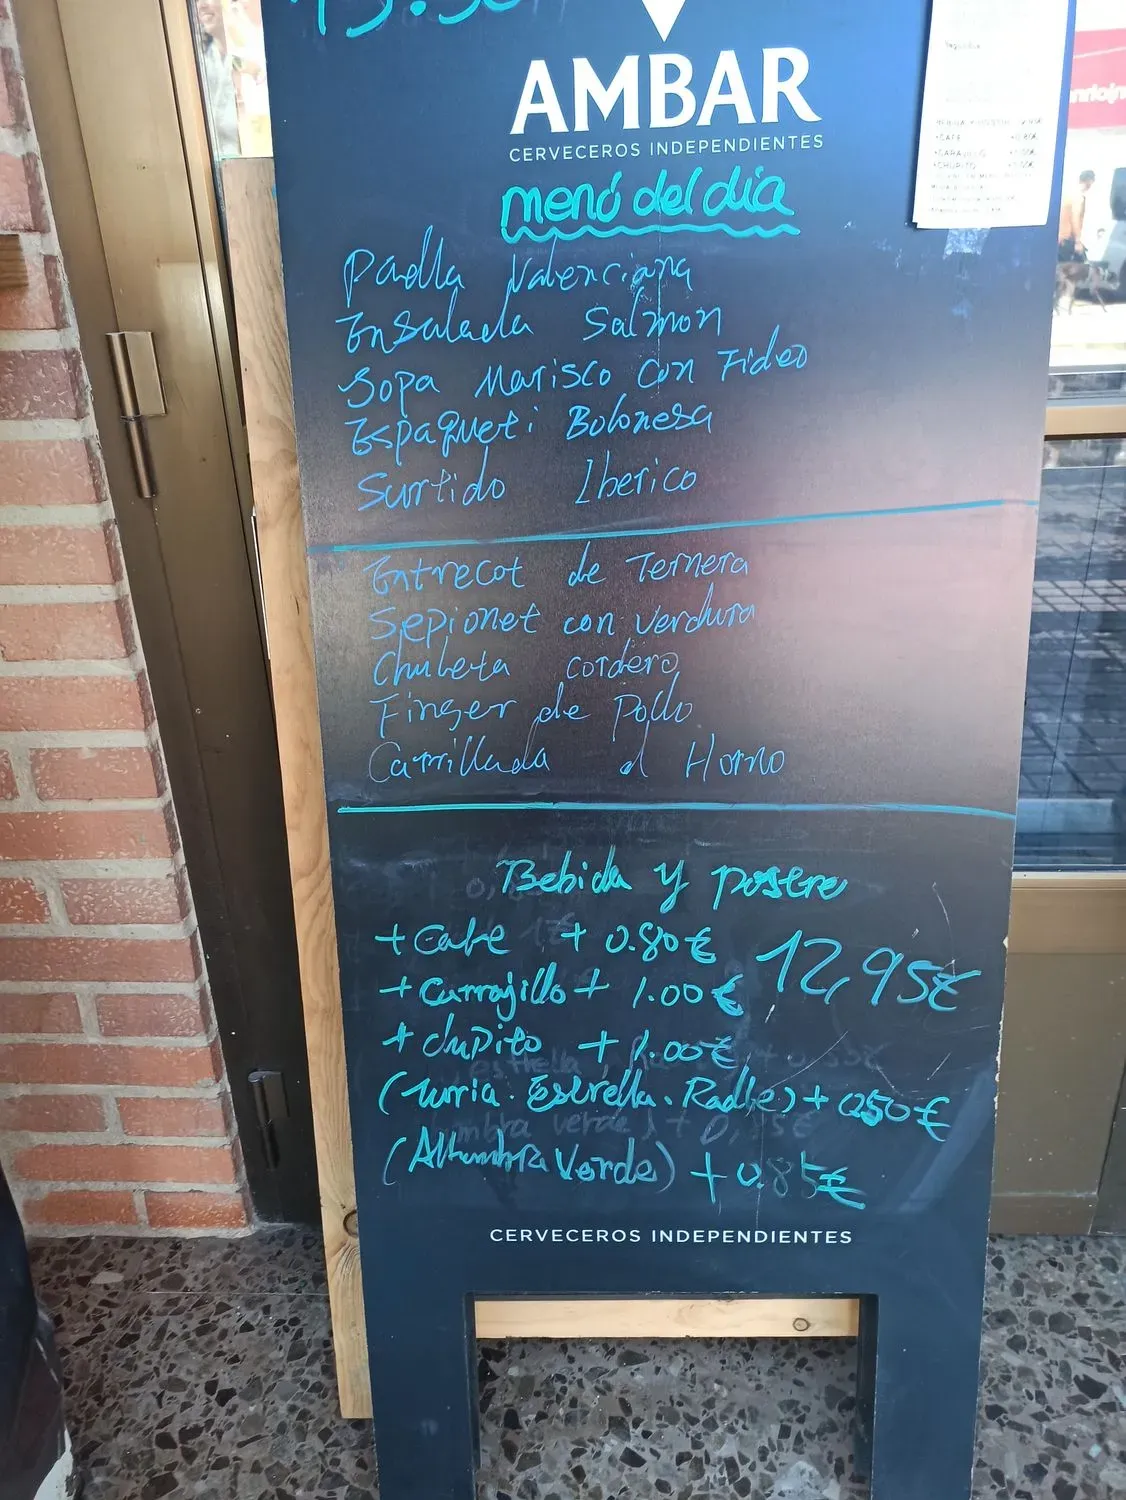 AMBAR
CERVECEROS INDEPENDIENTES
menú del día
Paella Valenciana
Ensalada Salmon
Sopa Marisco con Fideo
Espaqueti Bolonesa
Surtido Iberico
Entrecot de Ternera
Sepionet con verdura
Chuleta cordero
Finger de Pollo
Carrillada al Horno
Bebida y postre
+ Cafe + 0.80€ 12,95€
+ Carrajillo + 1.00€
+ chupito + 1.00€
(Turria. Estrella. Radle) + 0.50€
(Alhambra Verde) + 0.85€
CERVECEROS INDEPENDIENTES